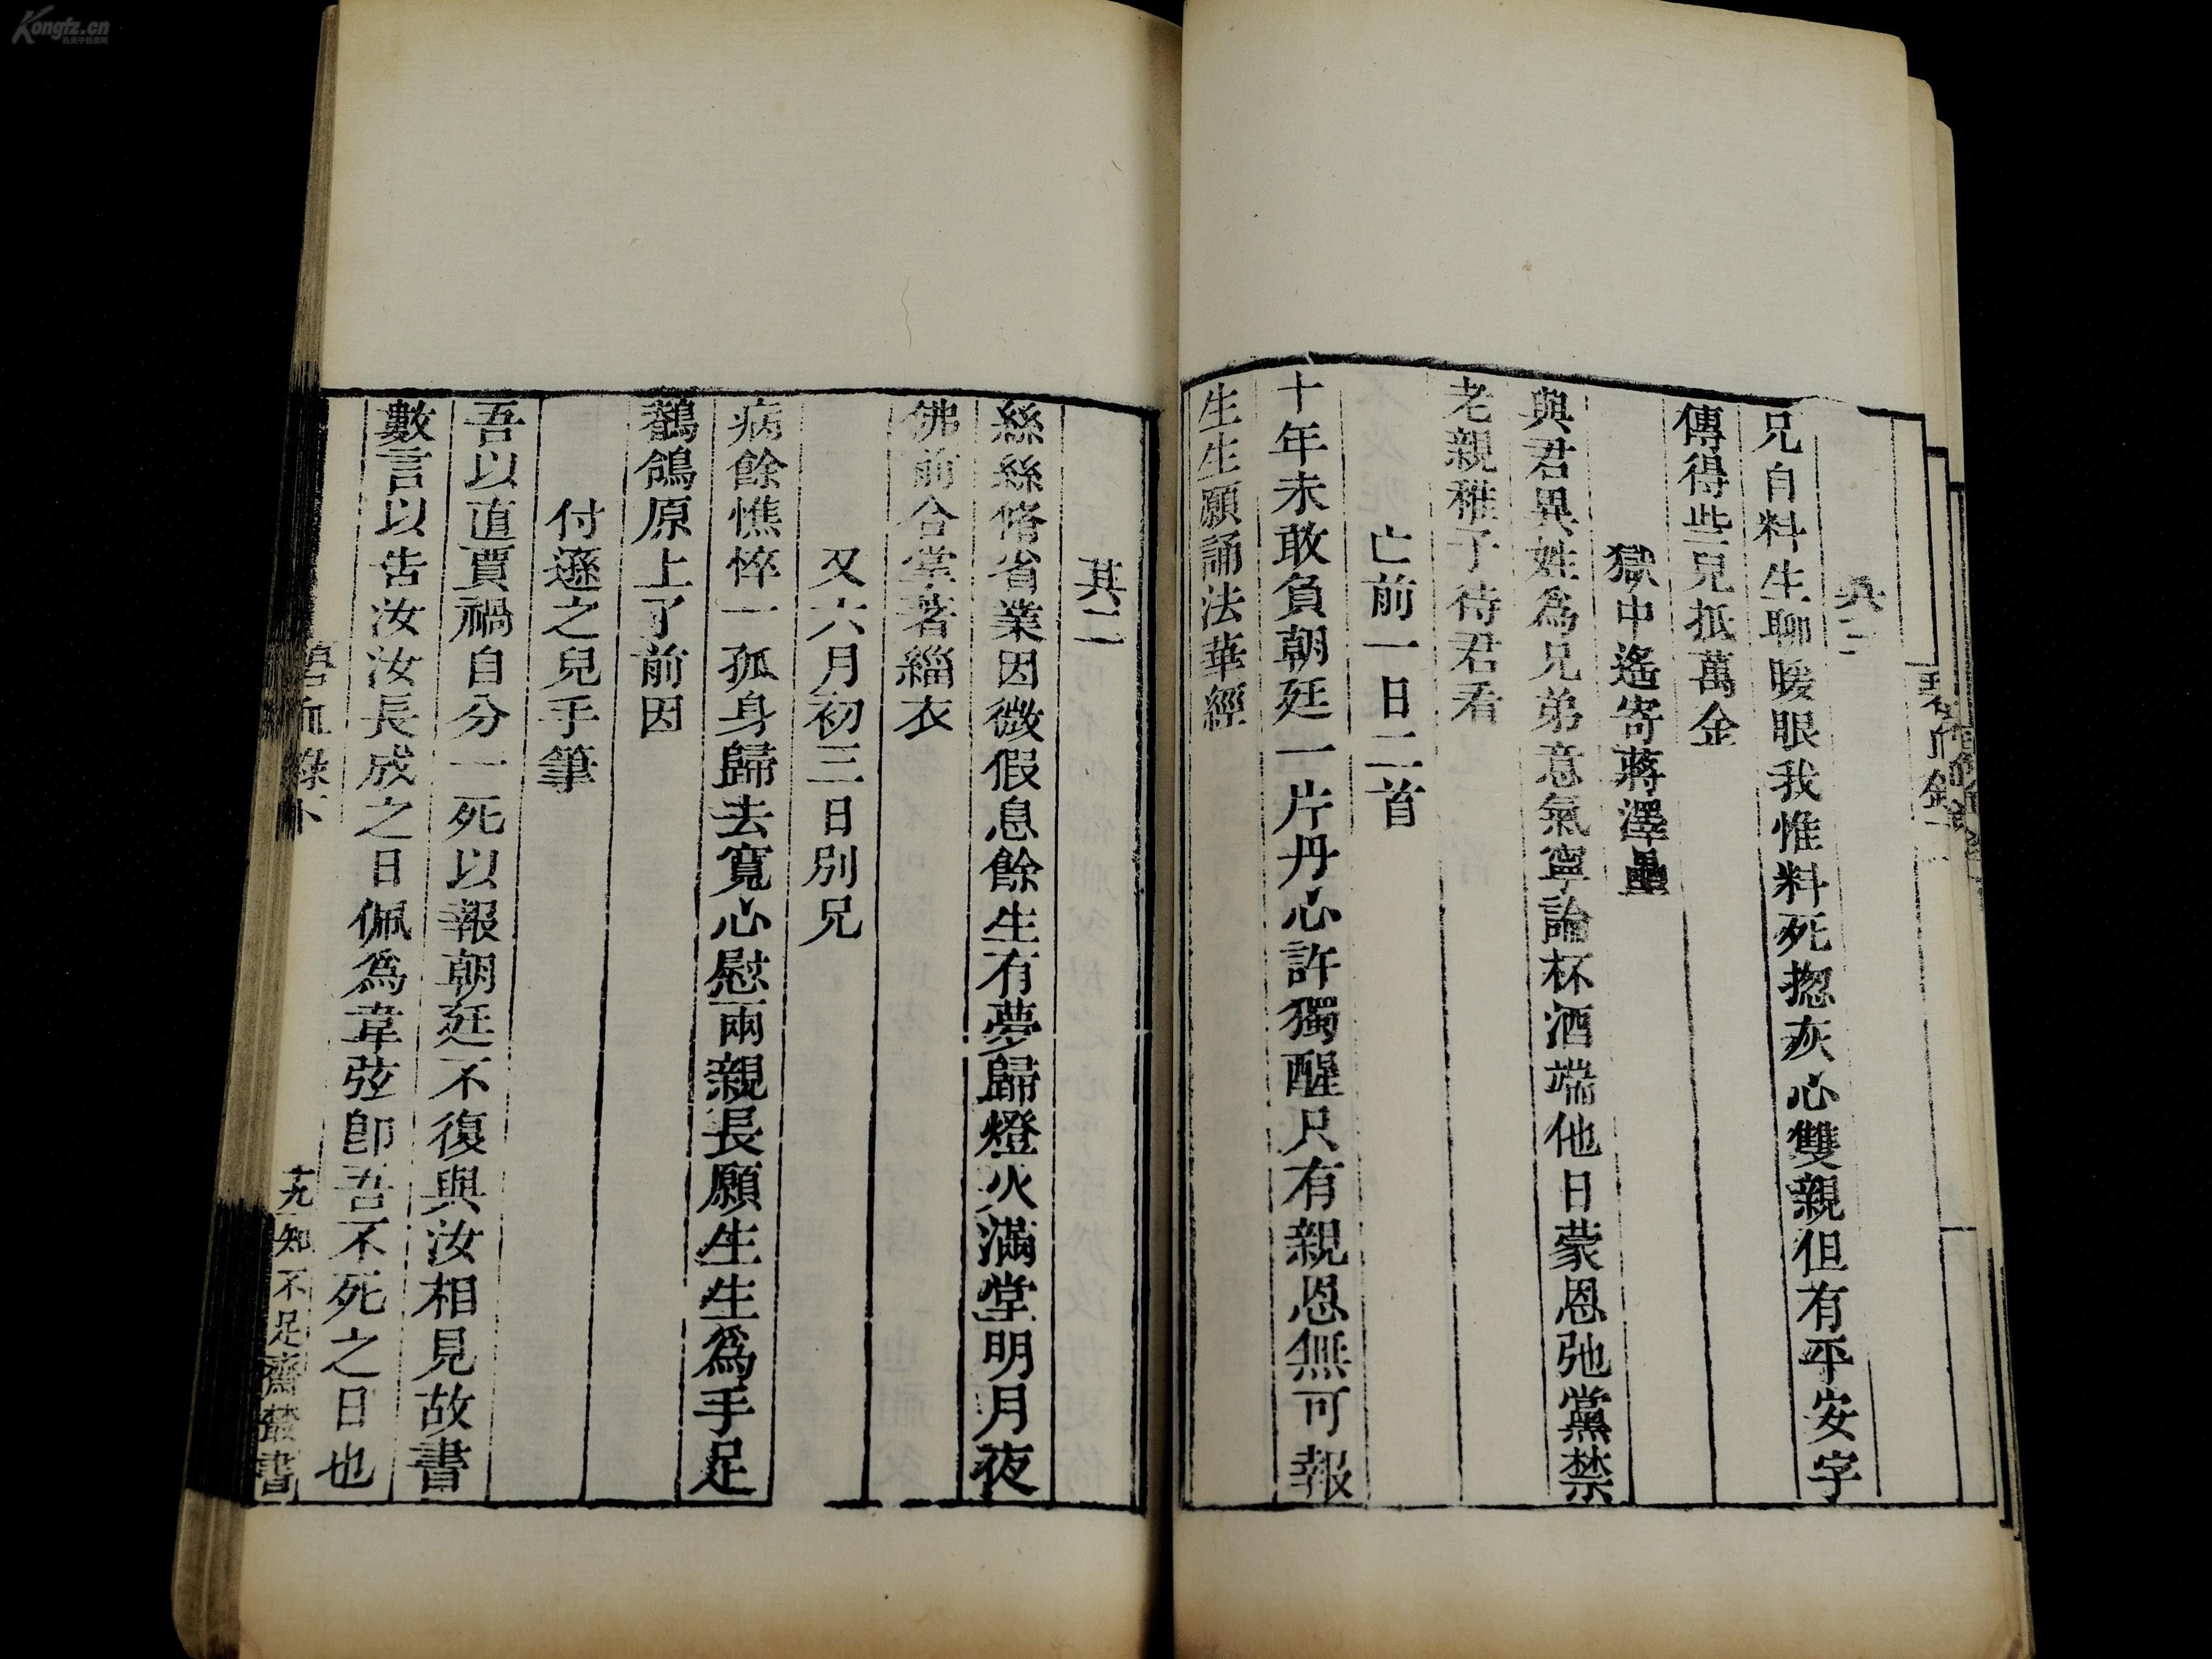 其二
兄自料生聊暖眼我惟料死揔灰心雙親但有平安字
傳得些兒抵萬金
獄中遙寄蔣澤壘
與君異姓爲兄弟意氣寧論杯酒端他日蒙恩弛黨禁
老親稚子待君看
亡前一日二首
十年未敢負朝廷一片丹心許獨醒只有親恩無可報
生生願誦法華經
其二
絲絲脩省業因微假息餘生有夢歸燈火滿堂明月夜
佛前合掌著緇衣
又六月初三日別兄
病餘憔悴一孤身歸去寬心慰兩親長願生生爲手足
鶺鴒原上了前因
付遜之兒手筆
吾以直賈禍自分一死以報朝廷不復與汝相見故書
數言以告汝汝長成之日佩爲韋弦卽吾不死之日也
碧血錄下
十九
知不足齋叢書
Kongfz.cn